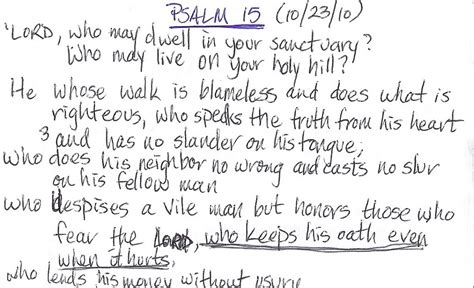 PSALM 15 (10/23/10)
'LORD, who may dwell in your sanctuary?
Who may live on your holy hill?
He whose walk is blameless and does what is
righteous, who speaks the truth from his heart
3 and has no slander on his tongue;
who does his neighbor no wrong and casts no slur
on his fellow man
who despises a vile man but honors those who
fear the LORD, who keeps his oath even
when it hurts,
who lends his money without usury